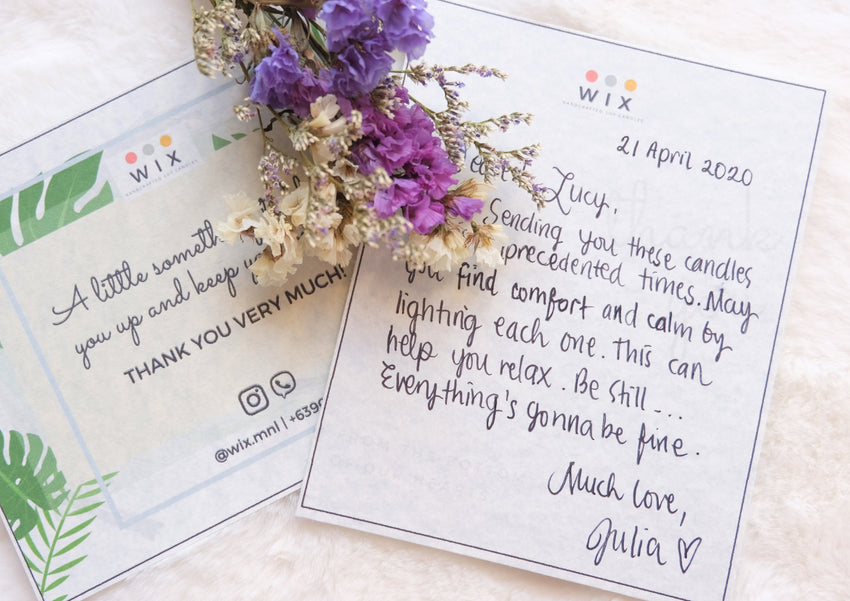 WIX
HANDCRAFTED SOY CANDLES
A little
you up and keep
THANK YOU VERY MUCH!
@wix.mnl |
WIX
HANDCRAFTED SOY CANDLES
21 April 2020
Lucy,
Sending you these candles
times. May
you find comfort and calm by
lighting each one. This can
help you relax. Be still...
Everything's gonna be fine.
Much love,
Julia ♡